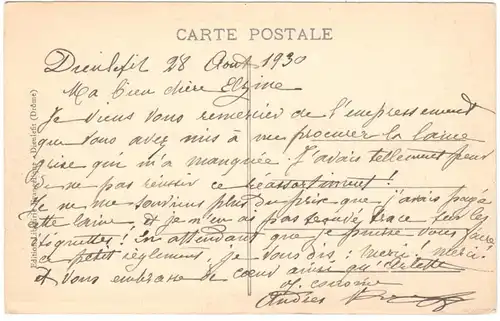 CARTE POSTALE
Dieulefit 28 Aout 1930
Ma bien chère
Je viens vous remercier de l'empressement
que vous avez mis à me procurer la laine
grise qui m'a manquée. J'avais tellement peur
de ne pas réussir ce réassortiment!
Je ne me souviens plus du prix que j'avais payé
cette laine et je n'en ai pas trouvé trace sur les
étiquettes! En attendant que je puisse vous faire
ce petit règlement, je vous dis: merci! merci!
et vous embrasse de cœur ainsi qu'Arlette
Edition Dieulefit (Drôme)